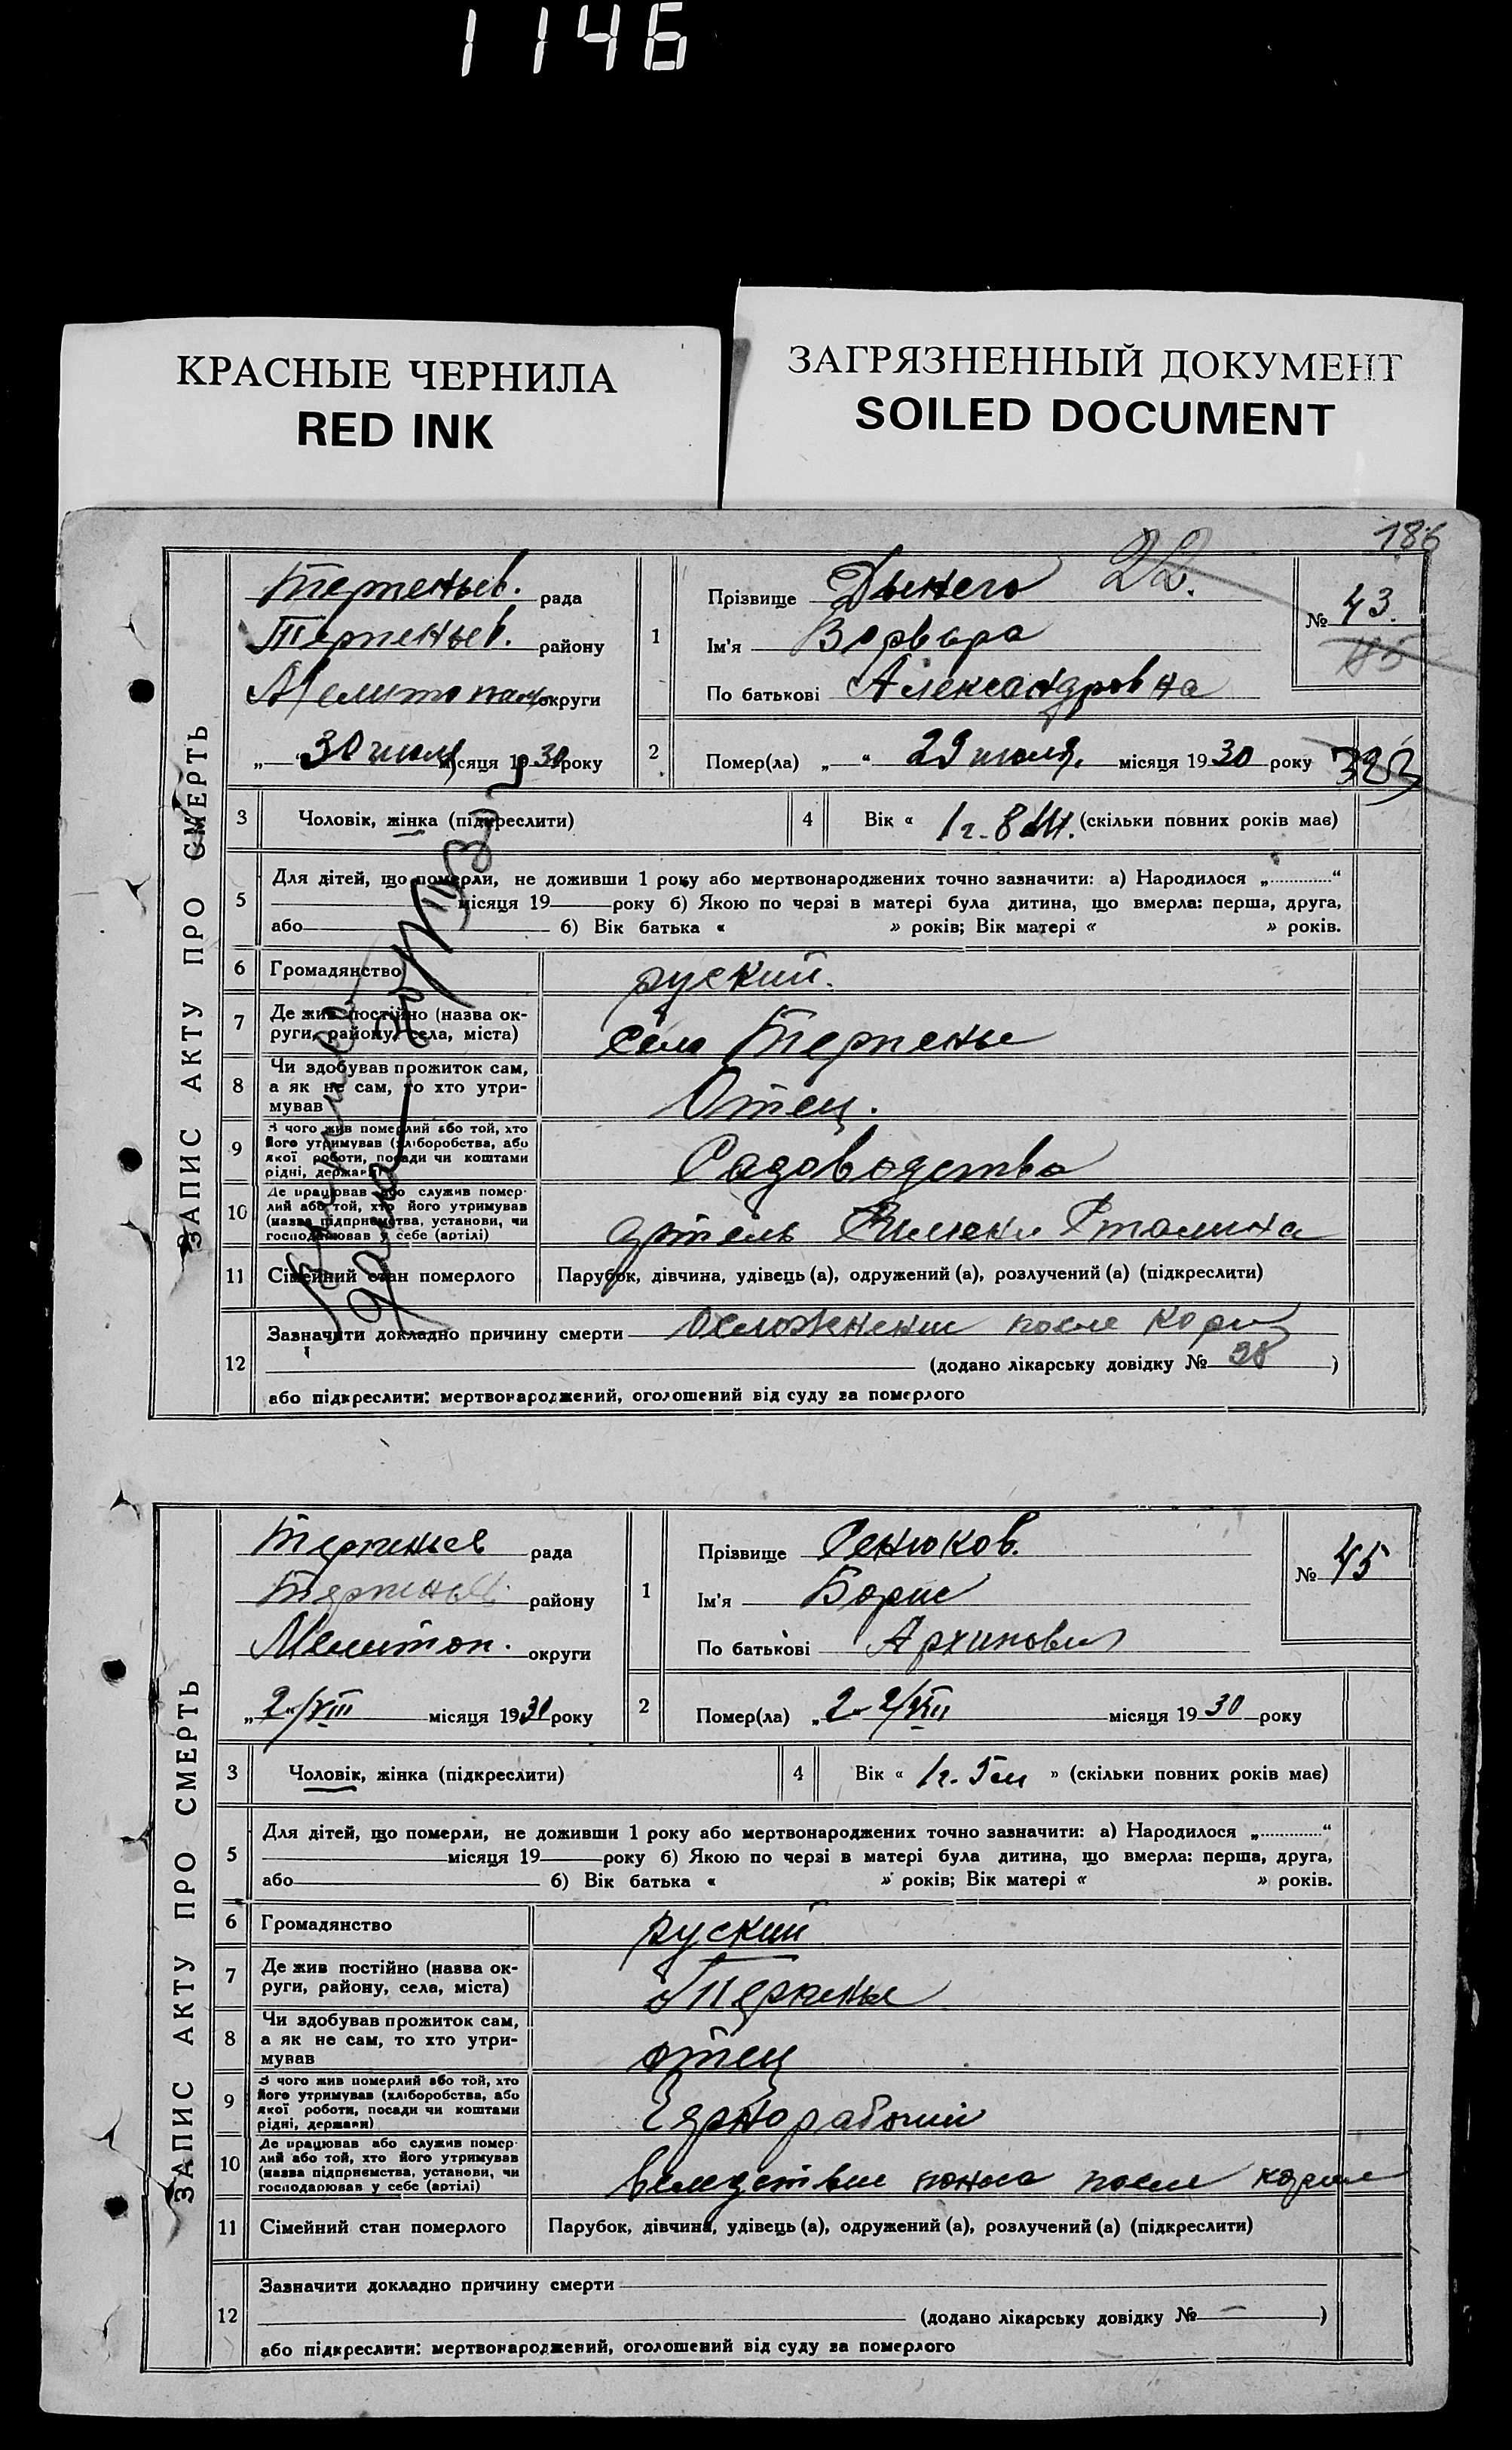 1146
КРАСНЫЕ ЧЕРНИЛА
RED INK
ЗАГРЯЗНЕННЫЙ ДОКУМЕНТ
SOILED DOCUMENT
186
22.
ЗАПИС АКТУ ПРО СМЕРТЬ
Терпеньев. рада
Терпеньев. району
Мелитопол округи
„ “ 30 июля місяця 1930 року
1
Прізвище
Ім'я Варвара
По батькові Александровна
№ 43.
45
2
Помер(ла) „ “ 29 июля. місяця 1930 року
323
3 Чоловік, жінка (підкреслити)
4 Вік « 1 г. 8 м. (скільки повних років має)
5 Для дітей, що померли, не доживши 1 року або мертвонароджених точно зазначити: а) Народилося „ “
місяця 19 року б) Якою по черзі в матері була дитина, що вмерла: перша, друга,
або б) Вік батька « » років; Вік матері « » років.
6 Громадянство руский.
7 Де жив постійно (назва ок-
руги, району, села, міста) село Терпенье
8 Чи здобував прожиток сам,
а як не сам, то хто утри-
мував Отец.
9 З чого жив померлий або той, хто
його утримував (хліборобства, або
якої роботи, посади чи коштами
рідні, держави) Садоводство
10 Де працював або служив помер-
лий або той, хто його утримував
(назва підприємства, установи, чи
господарював у себе (артілі) артель Сталина
11 Сімейний стан померлого Парубок, дівчина, удівець (а), одружений (а), розлучений (а) (підкреслити)
12 Зазначити докладно причину смерти после кори
(додано лікарську довідку № 38 )
або підкреслити: мертвонароджений, оголошений від суду за померлого
ЗАПИС АКТУ ПРО СМЕРТЬ
Терпеньев рада
Терпеньев. району
Мелитоп. округи
„ 2 “/VIII місяця 1930 року
1
Прізвище Сенюков.
Ім'я Борис
По батькові Архипович
№ 45
2
Помер(ла) „ 2 “ 2/VIII місяця 1930 року
3 Чоловік, жінка (підкреслити)
4 Вік « 1 г. 5 м » (скільки повних років має)
5 Для дітей, що померли, не доживши 1 року або мертвонароджених точно зазначити: а) Народилося „ “
місяця 19 року б) Якою по черзі в матері була дитина, що вмерла: перша, друга,
або б) Вік батька « » років; Вік матері « » років.
6 Громадянство руский
7 Де жив постійно (назва ок-
руги, району, села, міста) с Терпенье
8 Чи здобував прожиток сам,
а як не сам, то хто утри-
мував отец
9 З чого жив померлий або той, хто
його утримував (хліборобства, або
якої роботи, посади чи коштами
рідні, держави) Чернорабочий
10 Де працював або служив помер-
лий або той, хто його утримував
(назва підприємства, установи, чи
господарював у себе (артілі) вследствие поноса после кори
11 Сімейний стан померлого Парубок, дівчина, удівець (а), одружений (а), розлучений (а) (підкреслити)
12 Зазначити докладно причину смерти
(додано лікарську довідку № — )
або підкреслити: мертвонароджений, оголошений від суду за померлого